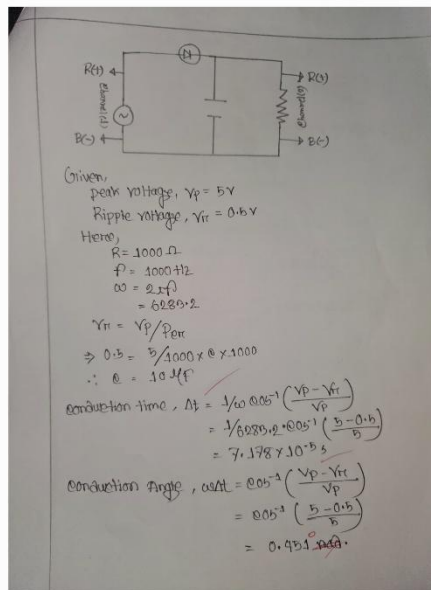 R(+)
R(+)
channel(1)
channel(2)
B(-)
B(-)
Given,
peak voltage, Vp = 5V
Ripple voltage, Vr = 0.5V
Here,
R = 1000 Ω
f = 1000 Hz
ω = 2πf
= 6283.2
Vr = Vp/fcr
⇒ 0.5 = 5/1000 × c × 1000
∴ c = 10 μF
conduction time, Δt = 1/ω cos⁻¹ (Vp - Vr / Vp)
= 1/6283.2 · cos⁻¹ (5 - 0.5 / 5)
= 7.178 × 10⁻⁵ s
conduction Angle, ωΔt = cos⁻¹ (Vp - Vr / Vp)
= cos⁻¹ (5 - 0.5 / 5)
= 0.451